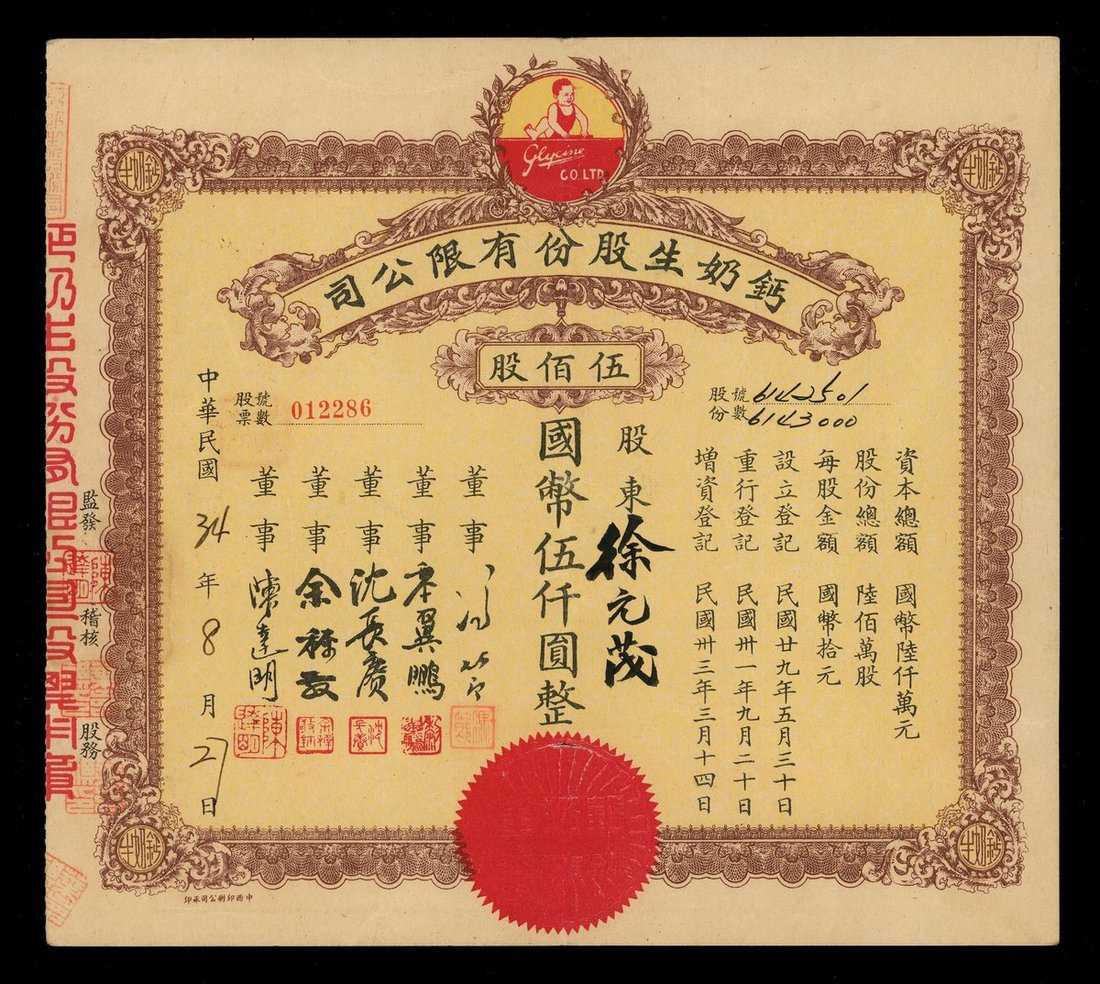 Glycine
CO. LTD.
鈣奶生股份有限公司
伍佰股
股份號數 6142501
6143000
資本總額 國幣陸仟萬元
股份總額 陸佰萬股
每股金額 國幣拾元
設立登記 民國廿九年五月三十日
重行登記 民國卅一年九月二十日
增資登記 民國卅三年三月十四日
股東 徐元茂
國幣伍仟圓整
董事
董事 李翼鵬
董事 沈長賡
董事 余
董事 陳達明
股票號數 012286
中華民國34年8月27日
監發
稽核
股務
鈣奶生
鈣奶生
鈣奶生
鈣奶生
中西印刷公司承印